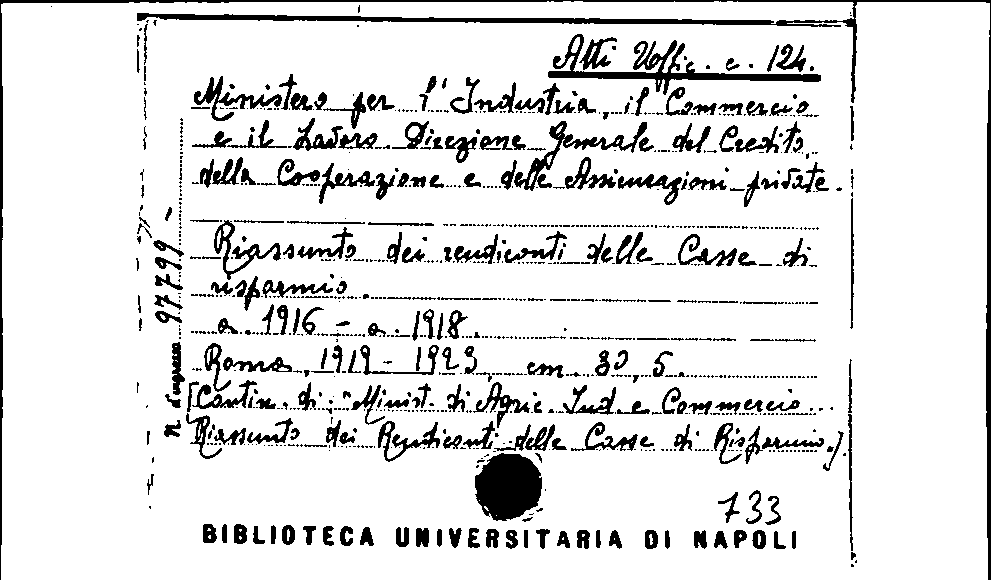 Atti Uffic. c. 124.
Ministero per l'Industria, il Commercio
e il Lavoro. Direzione Generale del Credito,
della Cooperazione e delle Assicurazioni private.
Riassunto dei rendiconti delle Casse di
risparmio.
a. 1916 - a. 1918.
Roma, 1919 - 1923, cm. 30,5.
[Contin. di: "Minist. di Agric. Ind. e Commercio...
Riassunto dei Rendiconti delle Casse di Risparmio.]
n. d'ingresso 97799 -
733
BIBLIOTECA UNIVERSITARIA DI NAPOLI